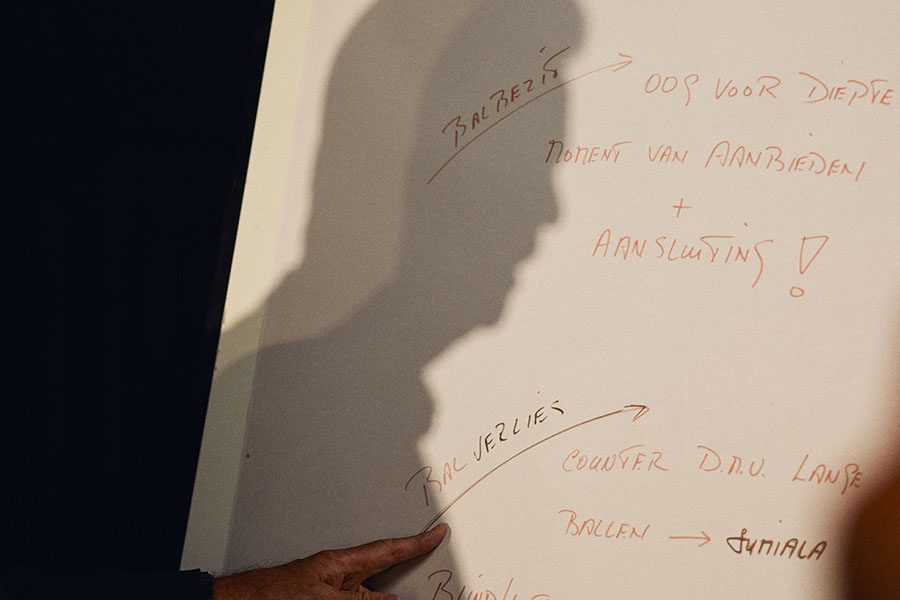 BALBEZIT
OOG VOOR DIEPTE
MOMENT VAN AANBIEDEN
+
AANSLUITING !
BALVERLIES
COUNTER D.M.V. LANGE
BALLEN → SUMIALA